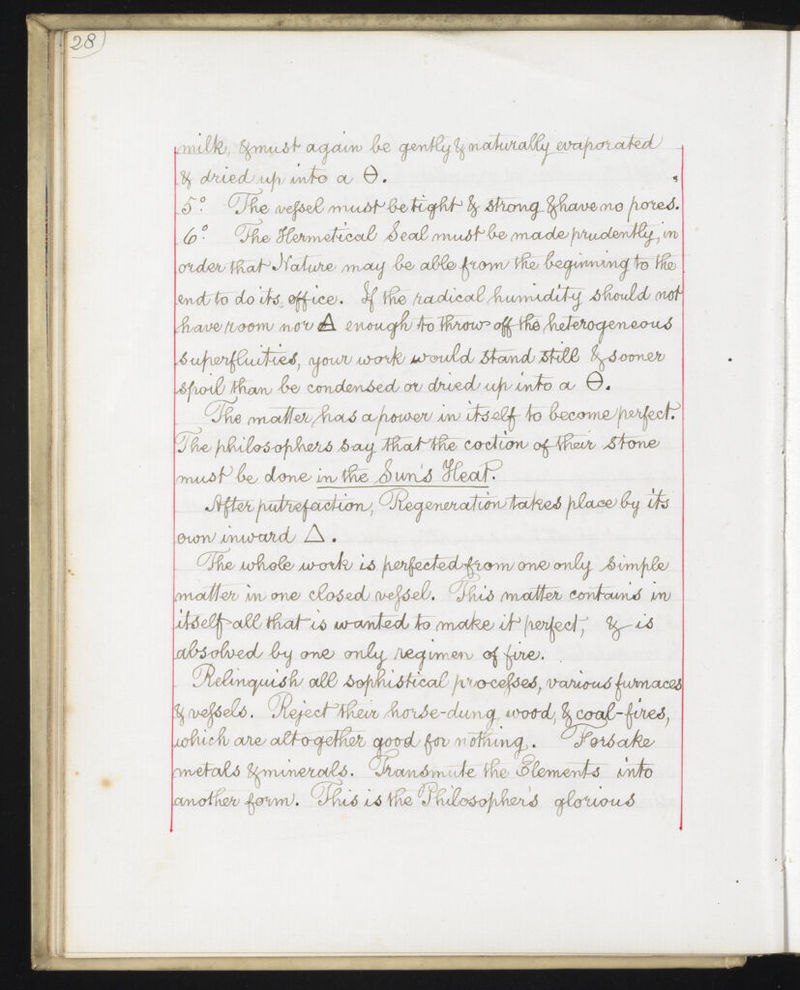 28
milk, & must again be gently & naturally evaporated
& dried up into a Θ.
5º. The veſsel must be tight & strong & have no pores.
6º. The Hermetical Seal must be made prudently, in
order that Nature may be able from the beginning to the
end to do its office. If the radical humidity should not
have room nor 🜁 enough to throw off the heterogeneous
superfluities, your work would stand still & sooner
spoil than be condensed or dried up into a Θ.
The matter has a power in itself to become perfect.
The philosophers say that the coction of their Stone
must be done in the Sun's Heat.
After putrefaction, Regeneration takes place by its
own inward △.
The whole work is perfected from one only simple
matter in one closed veſsel. This matter contains in
itself all that is wanted to make it perfect, & is
absolved by one only regimen of fire.
Relinquish all sophistical proceſses, various furnaces
& veſsels. Reject their horse-dung, wood, & coal-fires,
which are altogether good for nothing. Forsake
metals & minerals. Transmute the Elements into
another form. This is the Philosopher's glorious